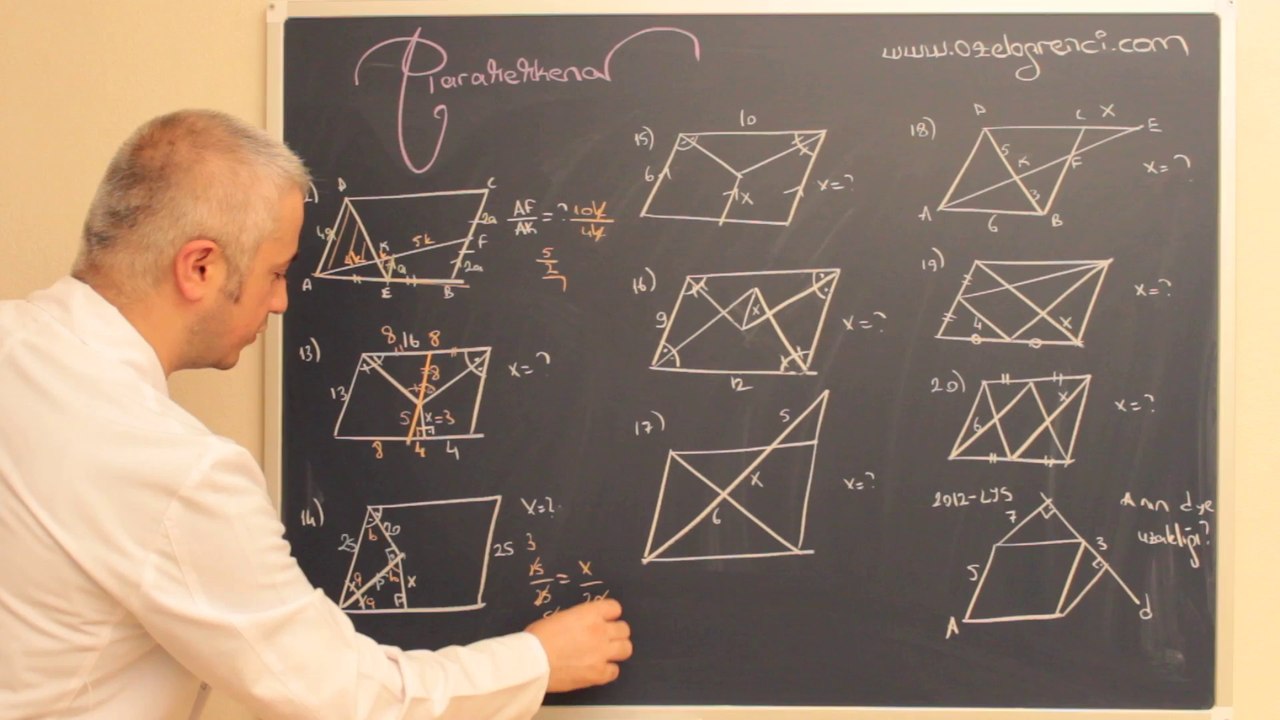 Paralelkenar
www.ozelogrenci.com
D C
4a 4k K 5k 2a F 2a
k a
A E B
AF/AK = ? 10k/4k
5/2
13)
8 16 8
13 8
5 x=3
8 4 4
x=?
14)
x=?
25 b 20 25
a b x
a
3
15/25 = x/20
15)
10
6 x
x=?
16)
9 x
12
x=?
17)
5
x
6
x=?
18)
D C x E
5 K F
3
A 6 B
x=?
19)
4 x
x=?
20)
6 x
x=?
2012-LYS
A nın d ye
uzaklığı?
7
3
5
A d